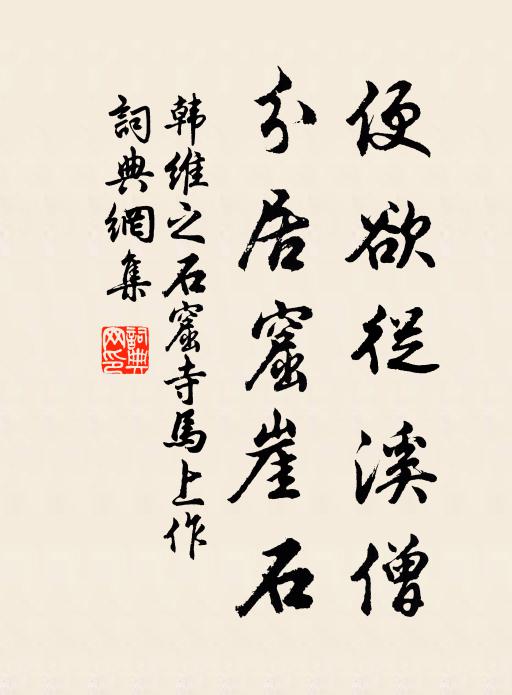 便欲從溪僧
分居窟崖石
韩維之石窟寺馬上作
詞典網集
詞典網印